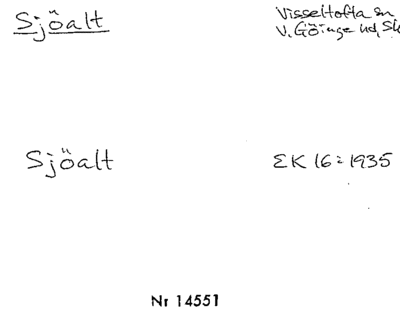 Sjöalt
Visseltofta sn
V. Göinge hd, Sk
Sjöalt
EK 16:1935
Nr 14551